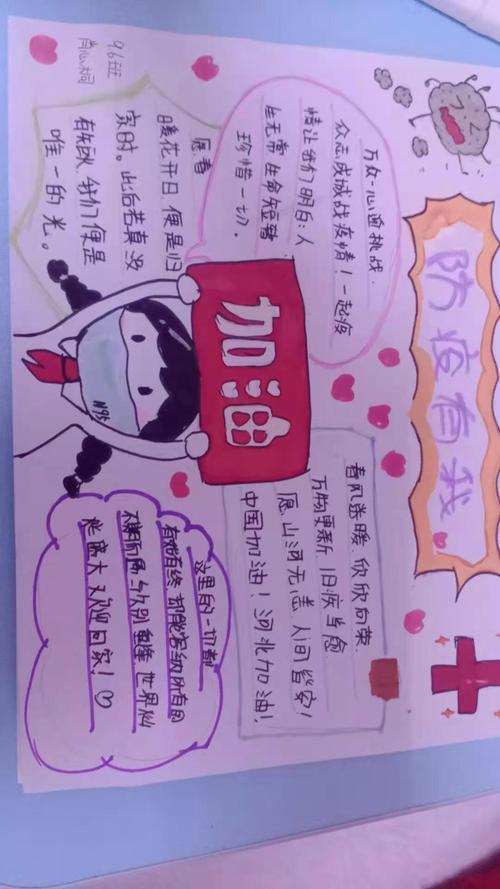 防疫有我
9.6班
万众一心迎挑战.
众志成城战疫情！一起疫
情让我们明白：人
生无常 生命短暂
珍惜一切.
愿春
暖花开日，便是归
家时。此后若真没
有炬火，我们便是
唯一的光。
加油
N95
春风送暖，欣欣向荣.
万物更新 旧疾当愈
愿山河无恙 人间皆安！
中国加油！河北加油！
这里的一切都
有始有终，却能容纳所有的
不期而遇与久别重逢 世界仍
然盛大 欢迎回家！♡